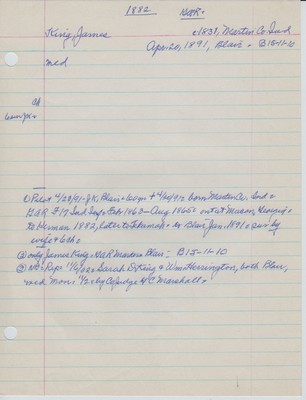 1882 GAR.
King, James c1838, Martin Co Ind
Apr. 20, 1891, Blair. B15-11-10
med
① Pilot 4/23/91 - J.K. Blair 60 yr + 4/20/91 born Martin Co. Ind.
GAR F 17 Ind Inf Feb 1863 - Aug 1865 at Macon, Georgia.
to Herman 1882, later to Tekamah. to Blair Jan 1891. sur by
wife & 6 ch.
② only James King NAR Masters Blair: B15-11-10
③ Sarah D King & Wm Herrington, both Blair,
by Co Judge H C Marshall.